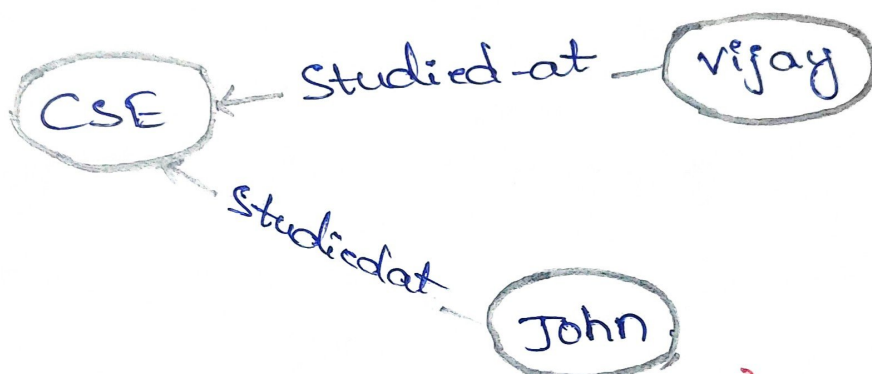 CSE
Studied-at
Vijay
Studiedat
John